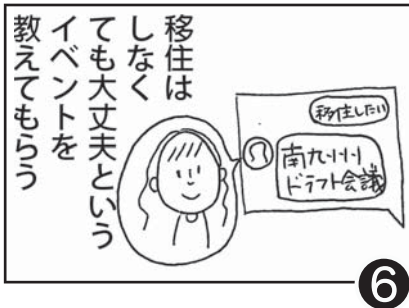 移住は
しなく
ても大丈夫という
イベントを
教えてもらう
移住したい
南九州
ドラフト会議
6